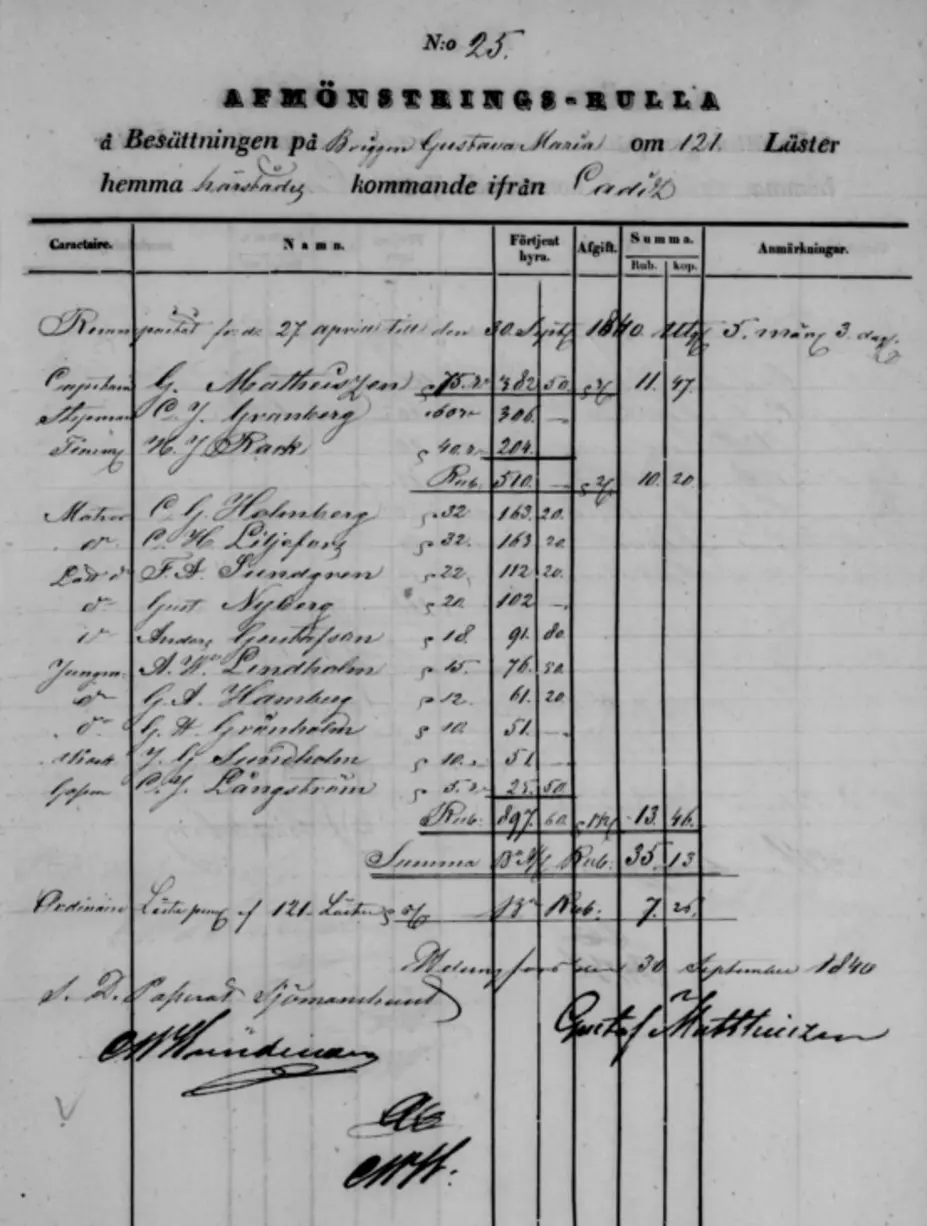 N:o 25.
AFMÖNSTRINGS-RULLA
å Besättningen på Briggen Gustava Maria om 121. Läster
hemma härstädes kommande ifrån Cadix
Caractaire. Namn. Förtjent hyra. Afgift. Summa. Anmärkningar.
Rub. kop.
27 april till den 30 Sept 1840 5. mån 3. dag.
Capitain G. Matheiszen 75. 382 50. 11. 47.
Styrman C. J. Granberg 60 306. —
H. J. Rack 40. 204.
Rub. 510. — 10. 20.
Matros C. G. Holmberg 32 163. 20.
do C. H. Liljefors 32. 163 20
F. A. Sundgren 22. 112 20.
do Gust Nyberg 20. 102 —
do Anders Gustafson 18. 91. 80.
Jungm. A. W. Lindholm 15. 76. 50.
do G. A. Hamberg 12. 61. 20.
do G. H. Grönholm 10. 51. —
J. G. Sundholm 10. 51 —
C. J. Långström 5. 25. 50.
Rub. 897. 60. 13. 46.
Summa Rub. 35. 13
Ordinaire af 121. Läster Rub. 7. 26.
Helsingfors den 30 September 1840
S. D. Sjömanshuset
Gustaf Mattheiszen